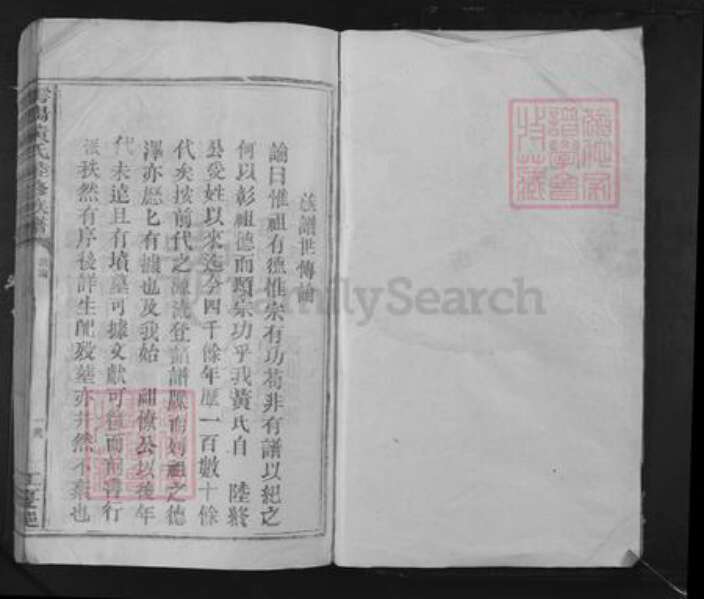 族譜世傳論
論曰惟祖有德惟宗有功苟非有譜以紀之
何以彰祖德而顯宗功乎我黃氏自 陸終
公受姓以來迄今四千餘年歷一百數十餘
代矣按前代之源流登諸譜牒而列祖之德
澤亦歷匕有據也及我始 祖僚公以後年
代未遠且有墳墓可據文獻可徵而前書行
派秩然有序後詳生配歿塟亦井然不紊也
黃氏 修族譜
江夏
FamilySearch